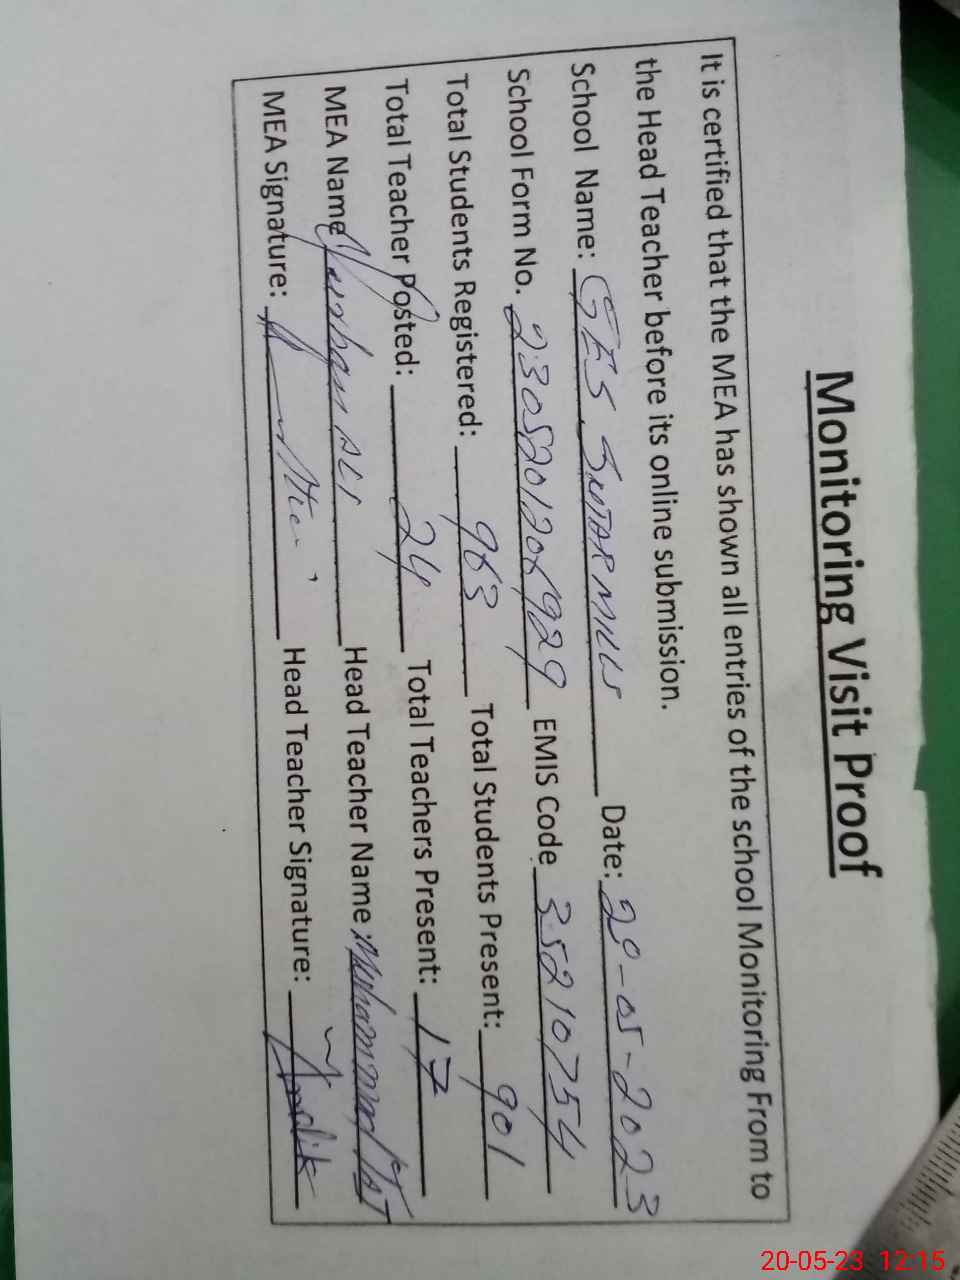 Monitoring Visit Proof
It is certified that the MEA has shown all entries of the school Monitoring From to
the Head Teacher before its online submission.
School Name: GES SUTAR MILLS Date: 20-05-2023
School Form No. EMIS Code 35210754
Total Students Registered: 963 Total Students Present: 901
Total Teacher Posted: 24 Total Teachers Present: 17
MEA Name ALI Head Teacher Name: Muhammad
MEA Signature: Head Teacher Signature:
20-05-23 12:15